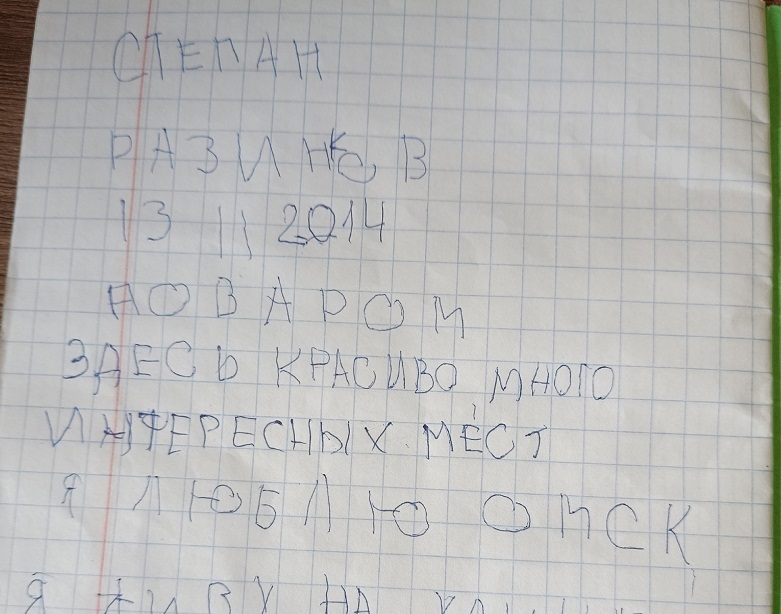 СТЕПАН
РАЗИНКОВ
13 11 2014
ПОВАРОМ
ЗДЕСЬ КРАСИВО МНОГО
ИНТЕРЕСНЫХ МЕСТ
Я ЛЮБЛЮ ОМСК
Я ЖИВУ НА